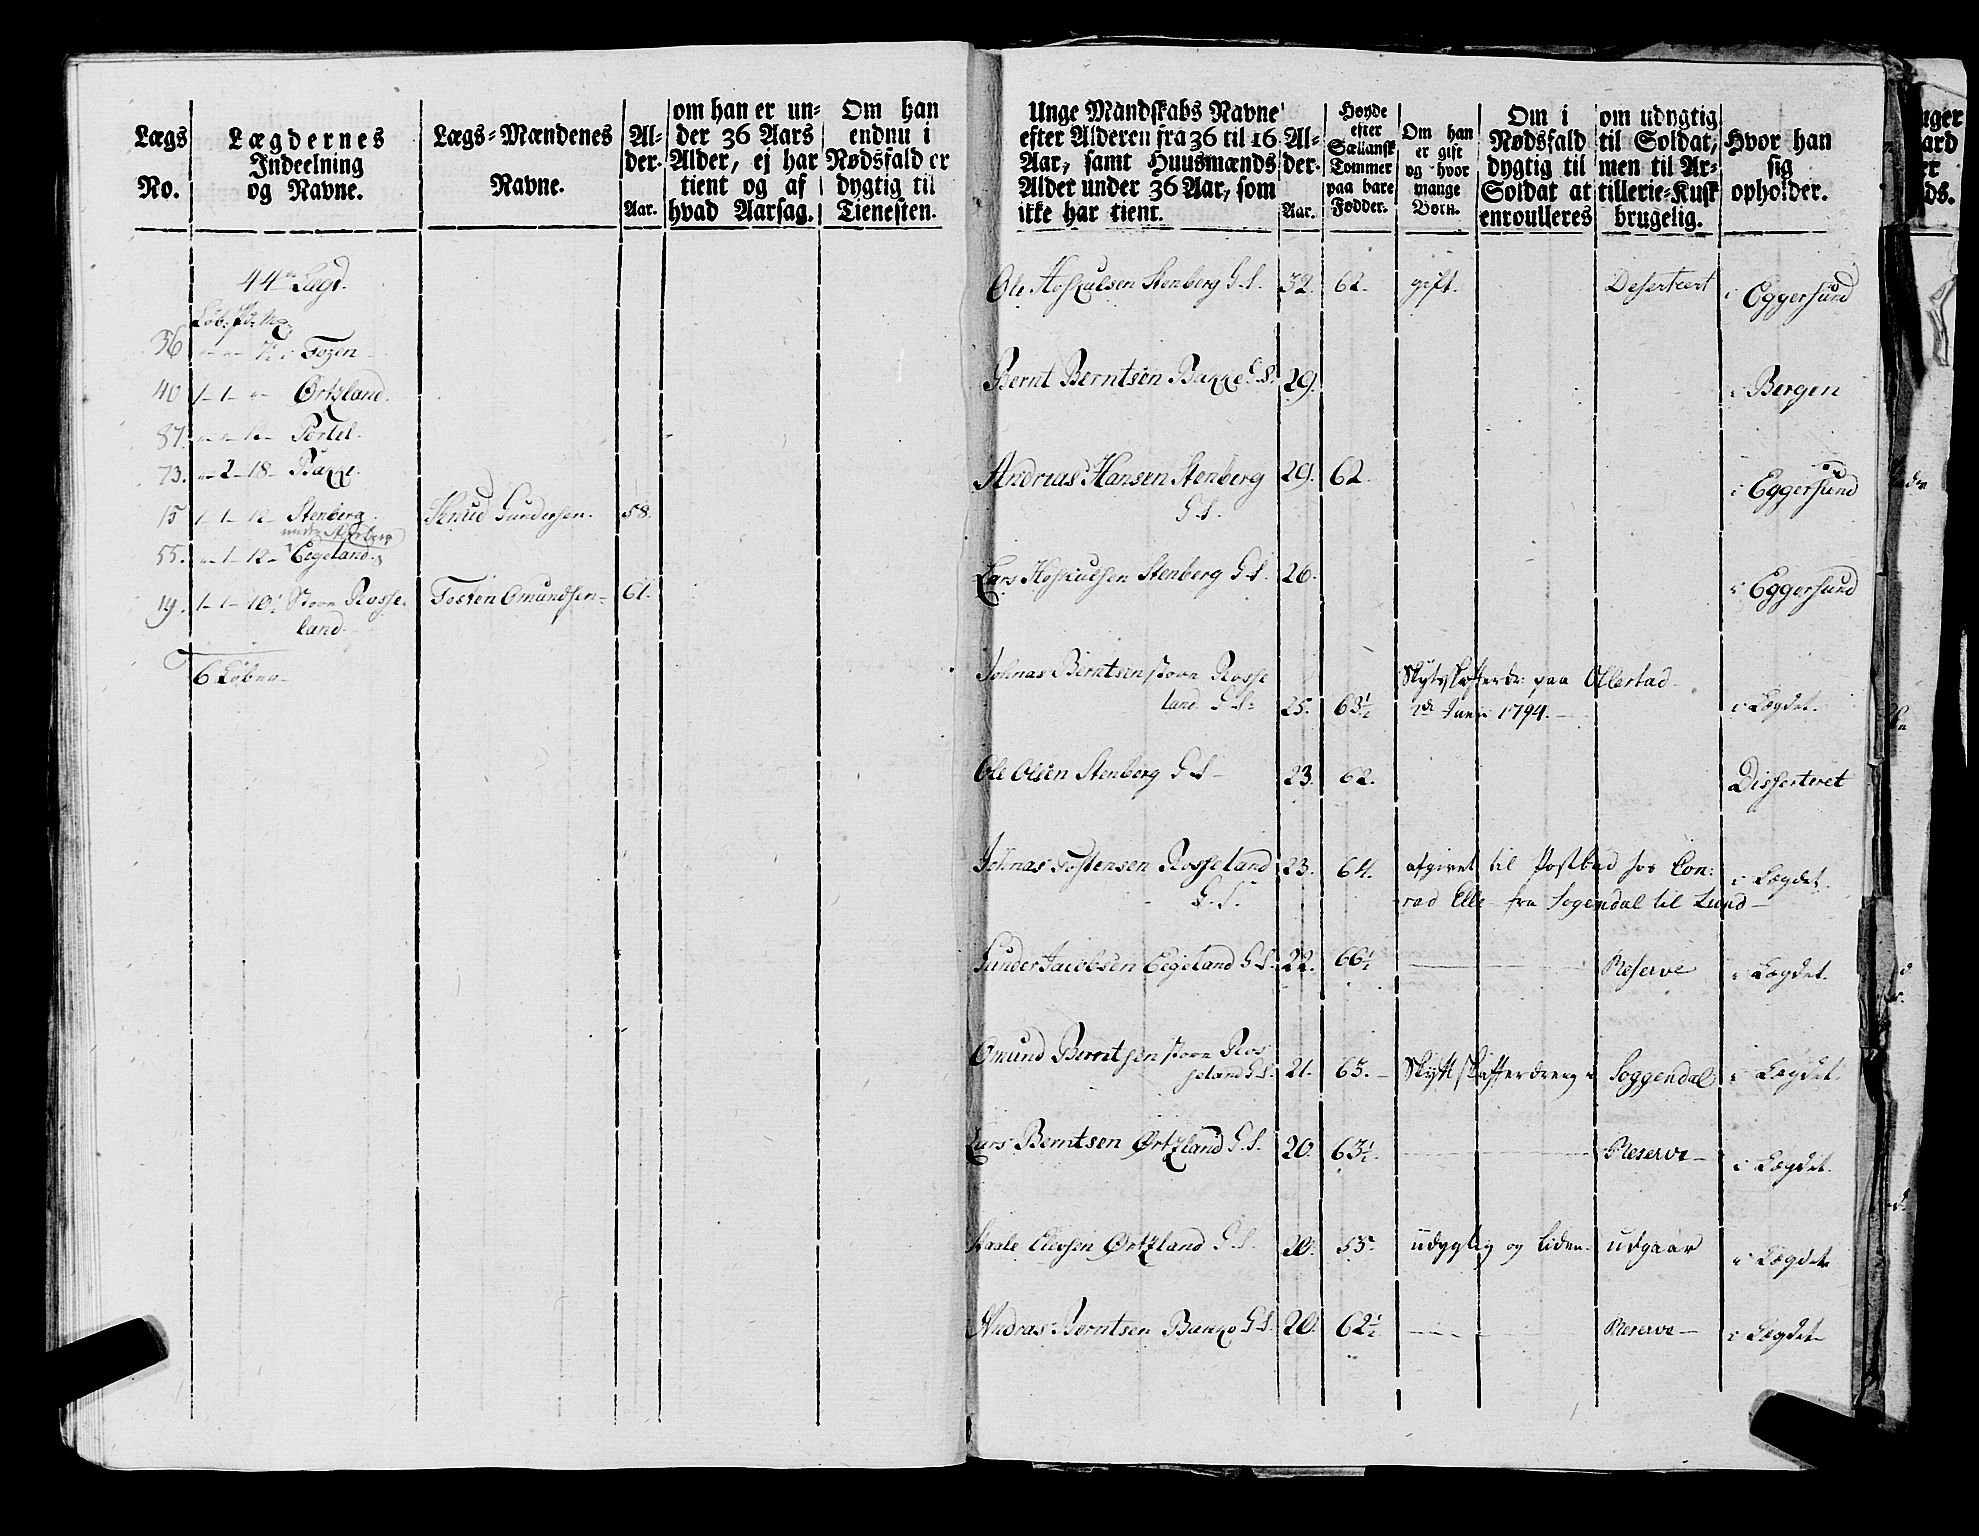 Lægs
No.
Lægdernes
Indeelning
og Navne.
Lægs-Mændenes
Navne.
Al-
der.
Aar.
om han er un-
der 36 Aars
Alder, ej har
tient og af
hvad Aarsag.
Om han
endnu i
Nødsfald er
dygtig til
Tienesten.
44 Lægd.
36 Fozen
40 1-1- Ørtzland.
87. 12- Tortel.
73. 2-18- Bakke.
15 1-1-12- Stenberg. Knud Gundersen. 58.
under Stenberg
55. 1-12- Eegeland.
19. 1-1-10½ Store Rosse- Tosten Omundsen- 61.
land.
6 Løber
Unge Mandskabs Navne
efter Alderen fra 36 til 16
Aar, samt Huusmænds
Alder under 36 Aar, som
ikke har tient.
Al-
der.
Aar.
Høyde
efter
Sællansk
Tommer
paa bare
Fødder.
Om han
er gift
og hvor
mange
Børn.
Om i
Nødsfald
dygtig til
Soldat at
enroulleres
om udygtig
til Soldat,
men til Ar-
tillerie-Kusk
brugelig.
Hvor han
sig
opholder.
Ole Hoskulsen Stenberg G.S. 32. 62. gift. Deserteert i Eggersund
Bernt Berntsen Bakke G.S. 29. i Bergen
Andreas Hansen Stenberg 29. 62. i Eggersund
G.S.
Lars Hoskulsen Stenberg G.S. 26. i Eggersund
Johnas Berntsen store Rosse Skydsskafferdr: paa Ollestad
land G.S. 25. 63½ Junii 1794. i Lægdet.
Ole Olsen Stenberg G.S. 23. 62. Disserteret
Johnas Tostensen Rosseland 23. 64. afgivet til Postbud hos Con- i Lægdet.
G.S. rad Elle fra Sogendal til Lund
Gunder Jacobsen Eegeland G.S. 22. 66½ Reserve i Lægdet.
Omund Berntsen store Ros
seland G.S. 21. 63. Skydtskafferdreng i Soggendal i Lægdet.
Lars Berntsen Ørtzland G.S. 20. 63½ Reserve i Lægdet.
Staale Olevsen Ørtzland G.S. 20. 53. udygtig og liden- udgaar i Lægdet
Andreas Berntsen Bakke G.S. 20. 62½ Reserve i Lægdet